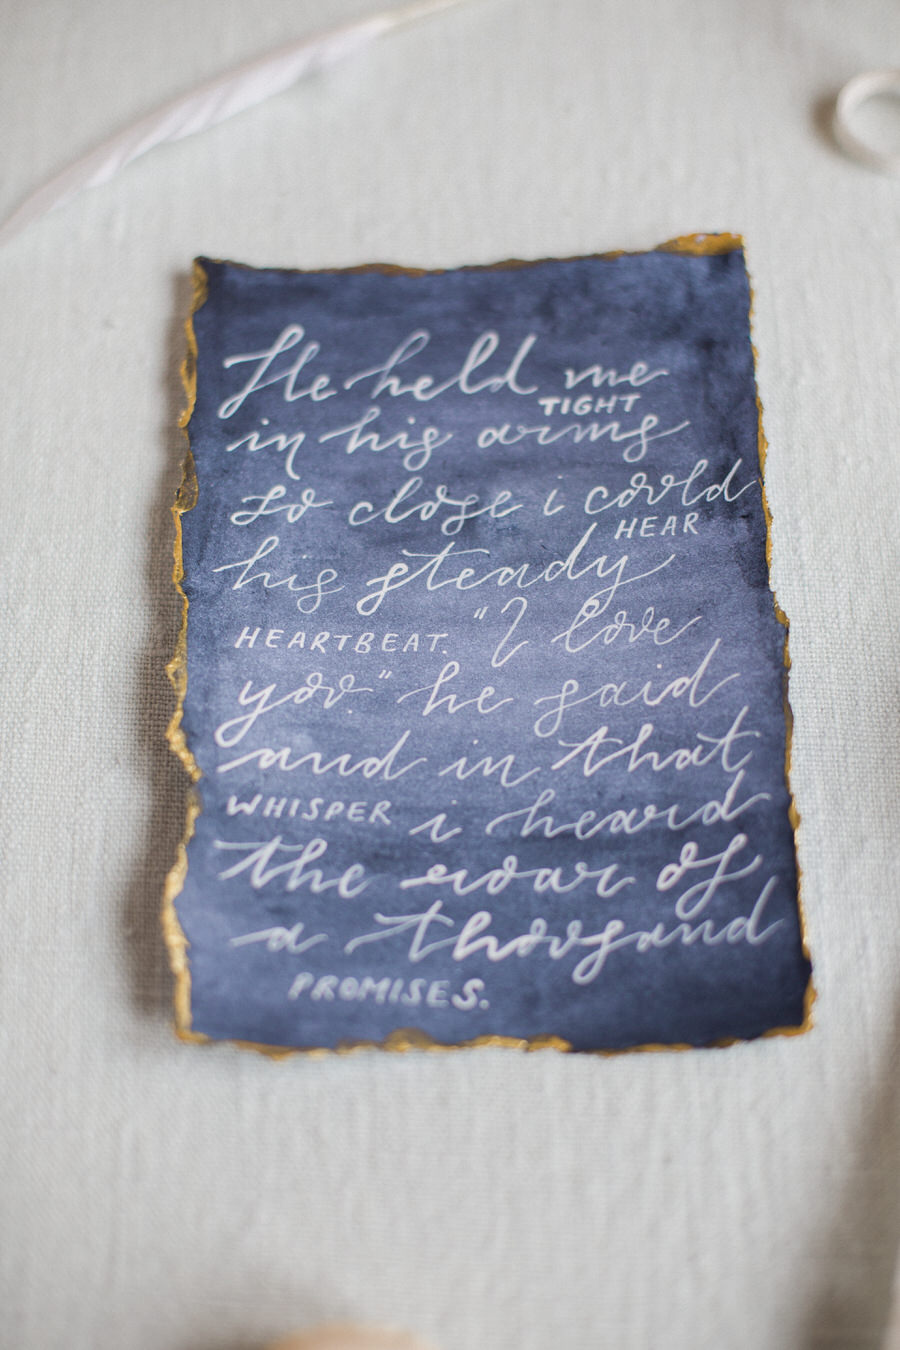 He held me
TIGHT
in his arms
so close i could
HEAR
his steady
HEARTBEAT. "I love
you." he said
and in that
WHISPER i heard
the roar of
a thousand
PROMISES.